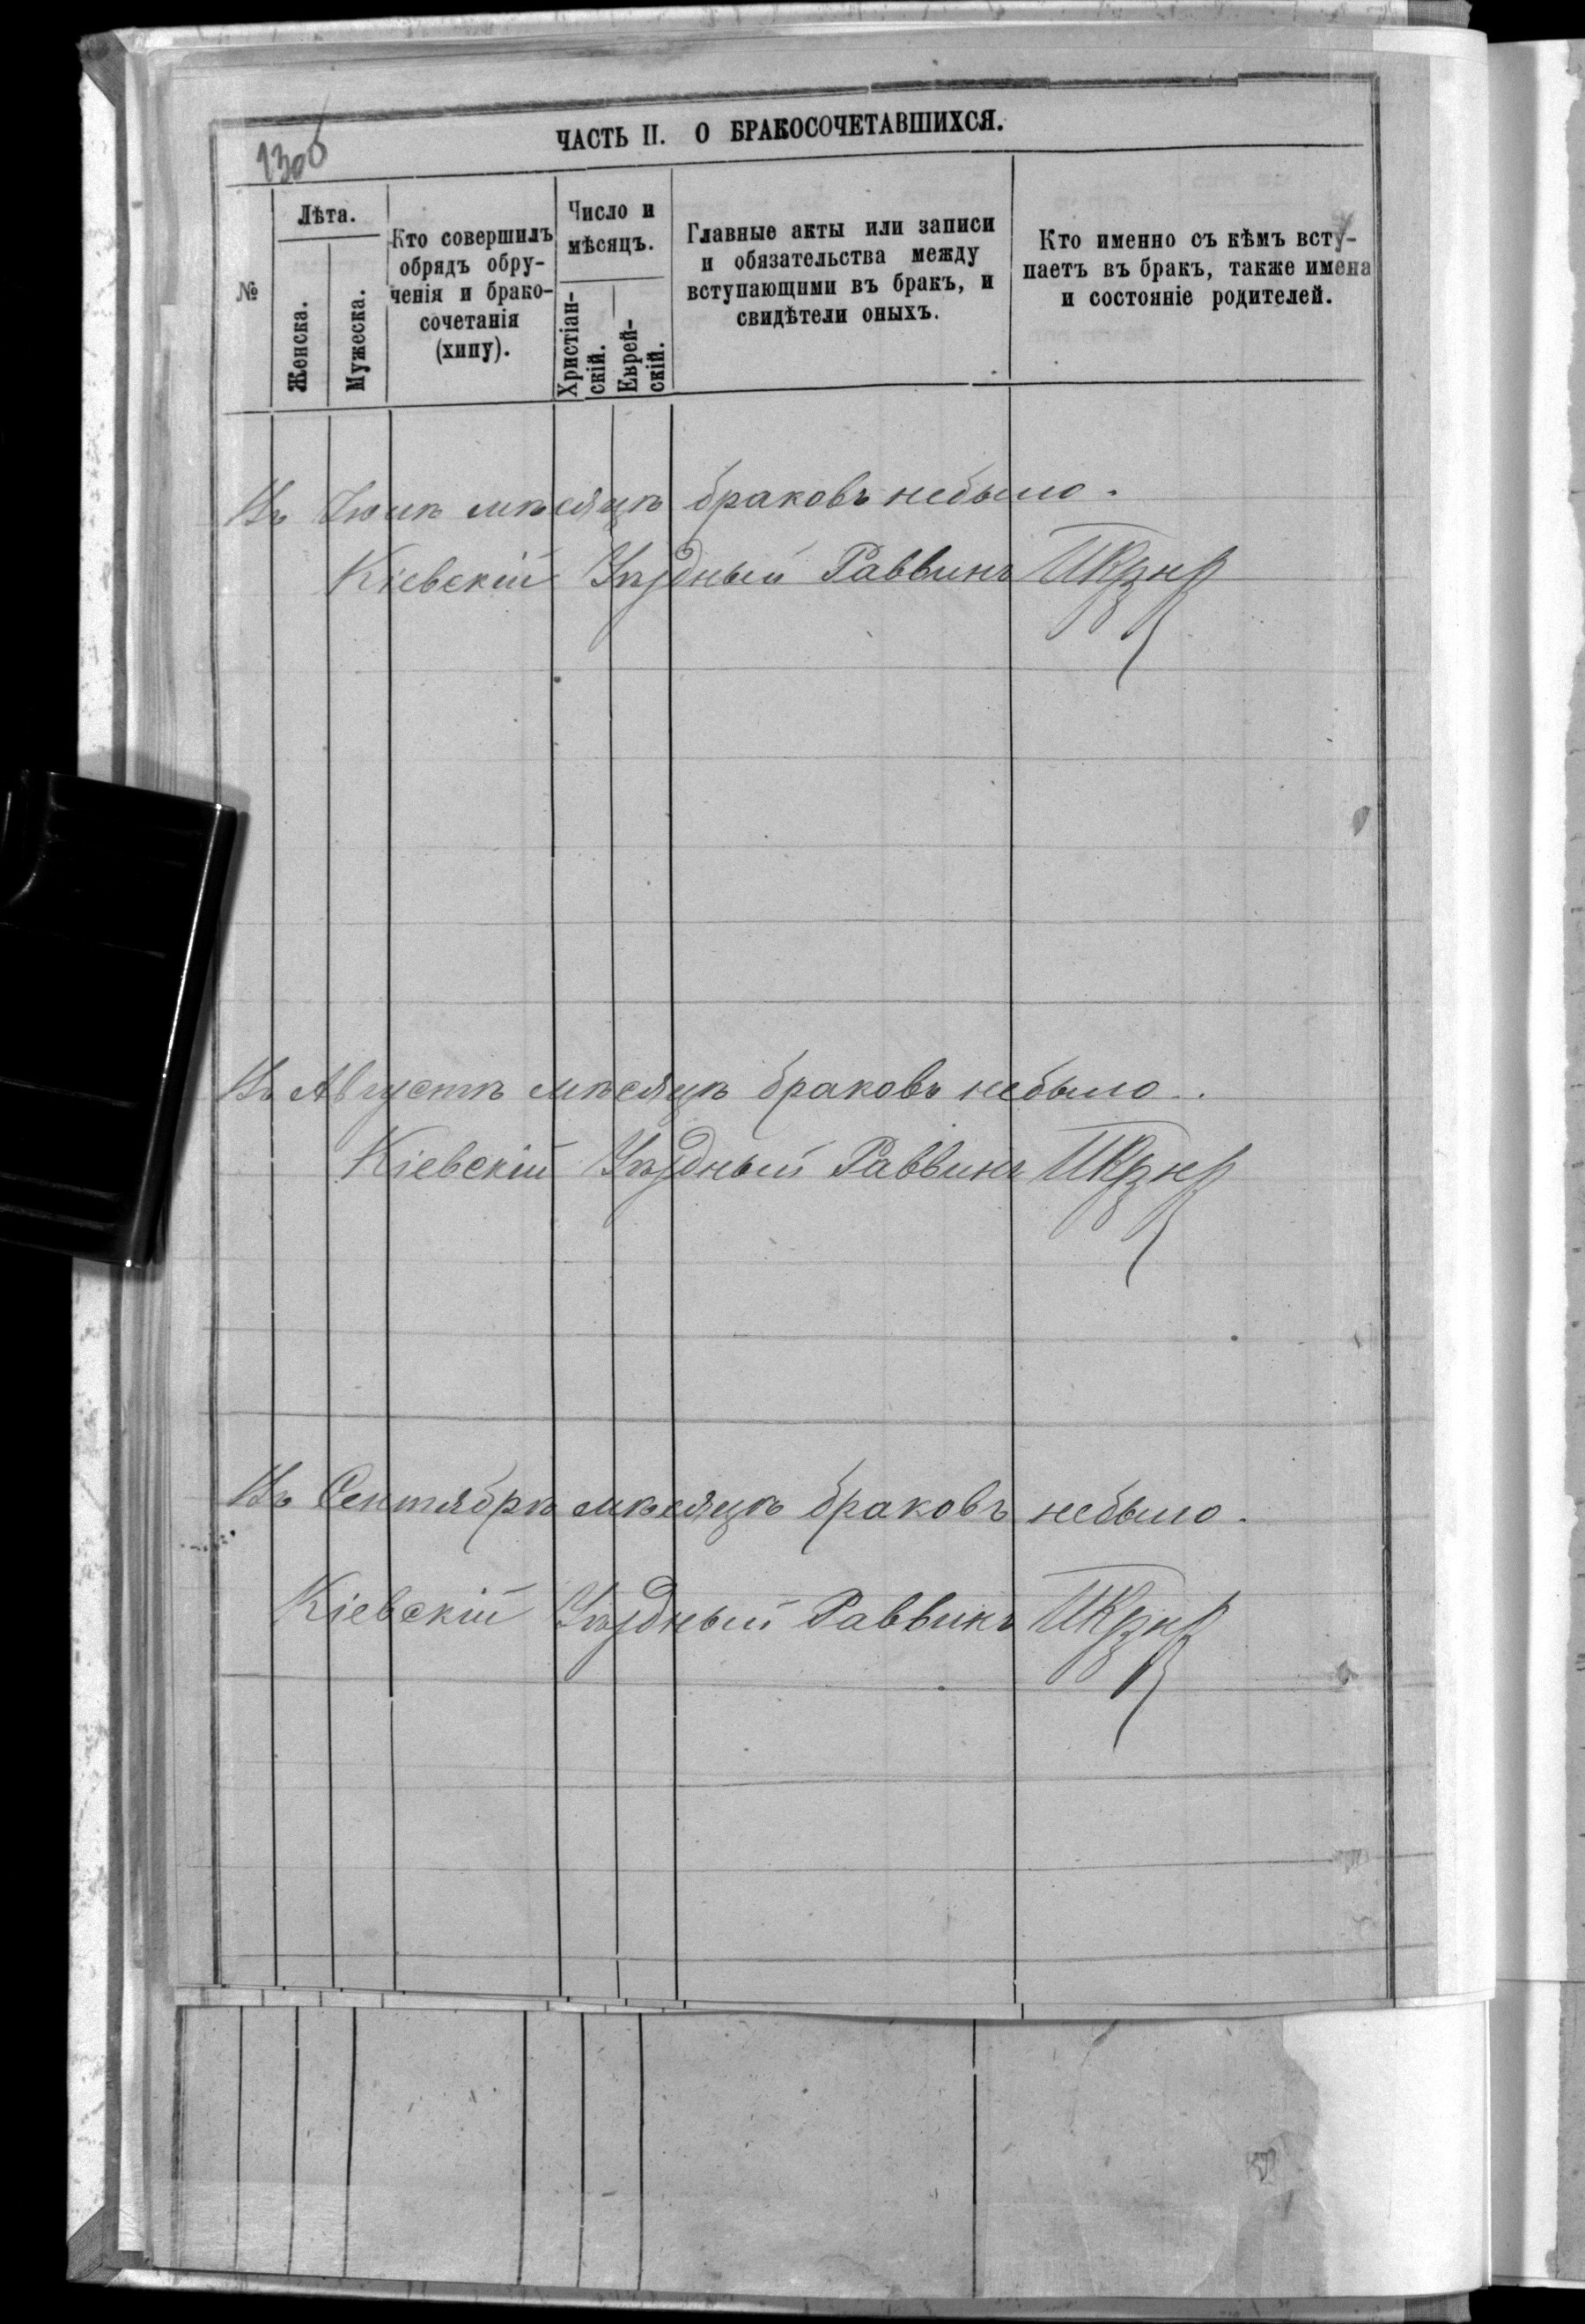 ЧАСТЬ II. О БРАКОСОЧЕТАВШИХСЯ.
№
Лѣта.
Женска.
Мужеска.
Кто совершилъ
обрядъ обру-
ченія и брако-
сочетанія
(хипу).
Число и
мѣсяцъ.
Христіан-
скій.
Еврей-
скій.
Главные акты или записи
и обязательства между
вступающими въ бракъ, и
свидѣтели оныхъ.
Кто именно съ кѣмъ всту-
паетъ въ бракъ, также имена
и состояніе родителей.
Въ Іюлѣ мѣсяцѣ браковъ небыло.
Кіевскій Уѣздный Раввинъ
Въ Августѣ мѣсяцѣ браковъ небыло.
Кіевскій Уѣздный Раввинъ
Въ Сентябрѣ мѣсяцѣ браковъ небыло.
Кіевскій Уѣздный Раввинъ